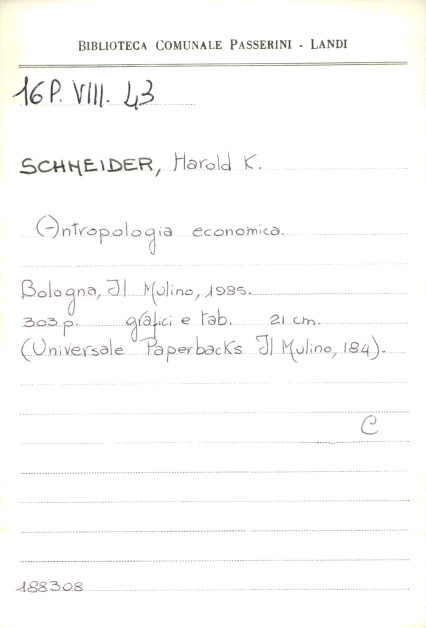 BIBLIOTECA COMUNALE PASSERINI - LANDI
16 P. VIII. 43
SCHNEIDER, Harold K.
Antropologia economica.
Bologna, Il Mulino, 1985.
303 p. grafici e tab. 21 cm.
(Universale Paperbacks Il Mulino, 184).
C
188308